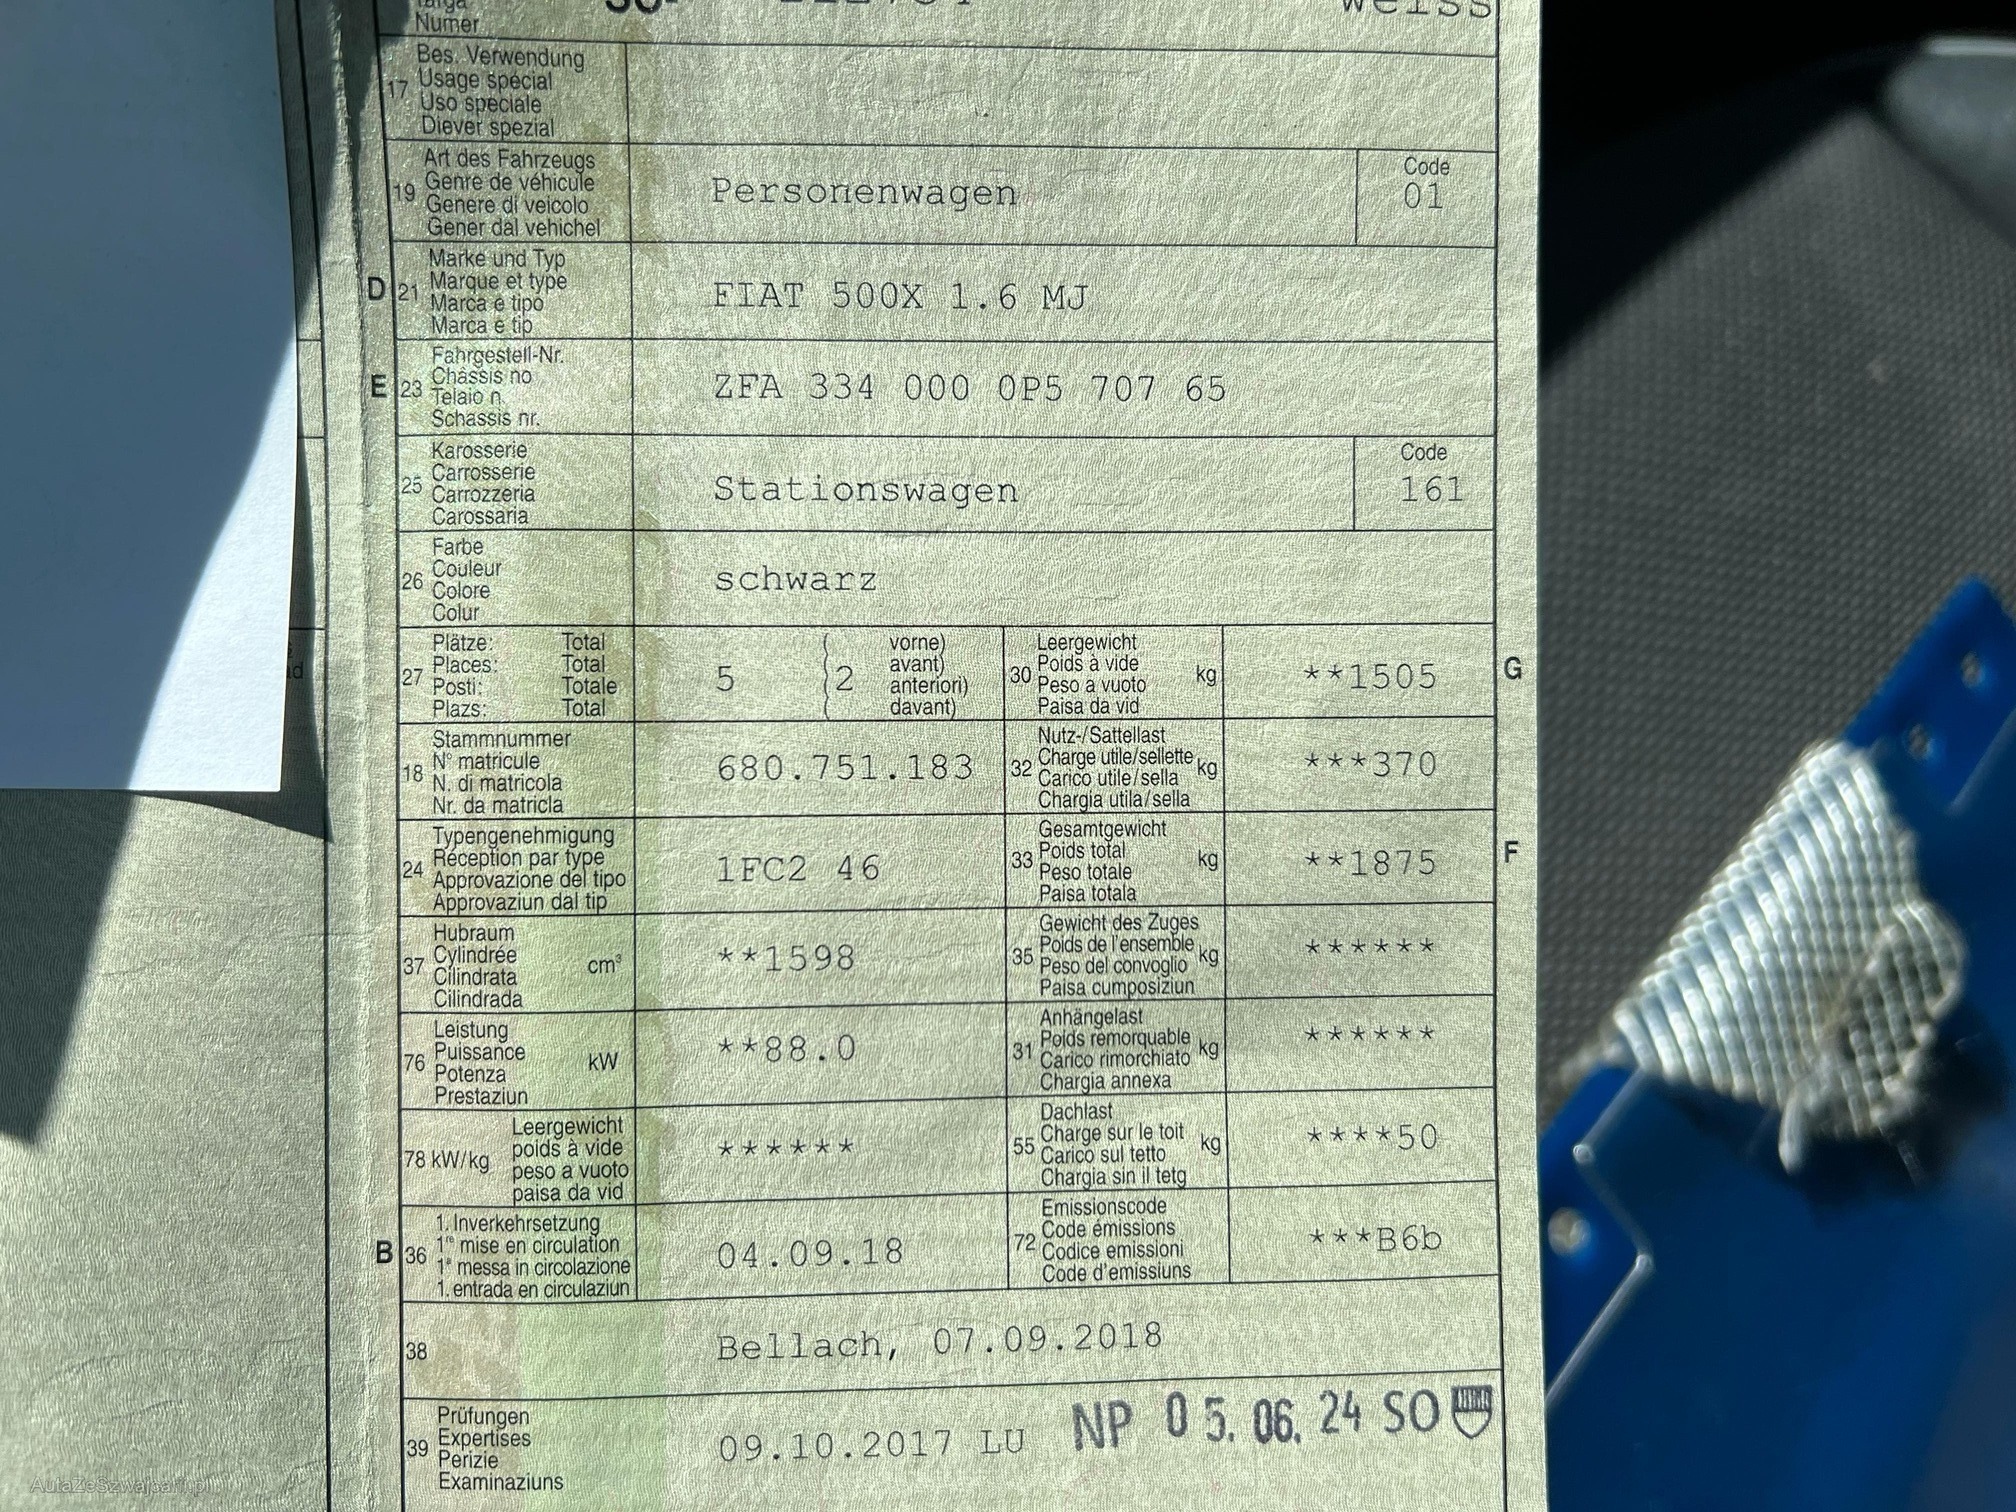 Targa
Numer
weiss
17 Bes. Verwendung
Usage spécial
Uso speciale
Diever spezial
19 Art des Fahrzeugs
Genre de véhicule
Genere di veicolo
Gener dal vehichel
Personenwagen
Code
01
D 21 Marke und Typ
Marque et type
Marca e tipo
Marca e tip
FIAT 500X 1.6 MJ
E 23 Fahrgestell-Nr.
Châssis no
Telaio n.
Schassis nr.
ZFA 334 000 0P5 707 65
25 Karosserie
Carrosserie
Carrozzeria
Carossaria
Stationswagen
Code
161
26 Farbe
Couleur
Colore
Colur
schwarz
27 Plätze: Total
Places: Total
Posti: Totale
Plazs: Total
5 ( 2 vorne)
avant)
anteriori)
davant)
30 Leergewicht
Poids à vide
Peso a vuoto
Paisa da vid
kg
**1505
G
18 Stammnummer
N° matricule
N. di matricola
Nr. da matricla
680.751.183
32 Nutz-/Sattellast
Charge utile/sellette
Carico utile/sella
Chargia utila/sella
kg
***370
24 Typengenehmigung
Réception par type
Approvazione del tipo
Approvaziun dal tip
1FC2 46
33 Gesamtgewicht
Poids total
Peso totale
Paisa totala
kg
**1875
F
37 Hubraum
Cylindrée
Cilindrata
Cilindrada
cm³
**1598
35 Gewicht des Zuges
Poids de l'ensemble
Peso del convoglio
Paisa cumposiziun
kg
******
76 Leistung
Puissance
Potenza
Prestaziun
kW
**88.0
31 Anhängelast
Poids remorquable
Carico rimorchiato
Chargia annexa
kg
******
78 kW/kg Leergewicht
poids à vide
peso a vuoto
paisa da vid
******
55 Dachlast
Charge sur le toit
Carico sul tetto
Chargia sin il tetg
kg
****50
B 36 1. Inverkehrsetzung
1re mise en circulation
1a messa in circolazione
1. entrada en circulaziun
04.09.18
72 Emissionscode
Code émissions
Codice emissioni
Code d'emissiuns
***B6b
38 Bellach, 07.09.2018
39 Prüfungen
Expertises
Perizie
Examinaziuns
09.10.2017 LU
NP 05.06.24 SO
AutaZeSzwajcarii.pl